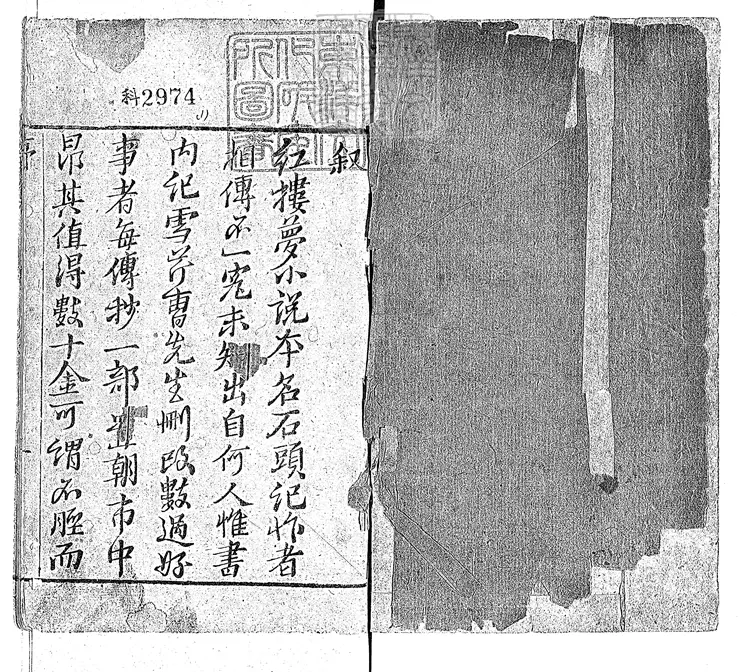 科2974
叙
紅樓夢小説本名石頭記作者
相傳不一究未知出自何人惟書
内記雪芹曹先生刪改數過好
事者每傳抄一部置廟市中
昂其值得數十金可謂不脛而